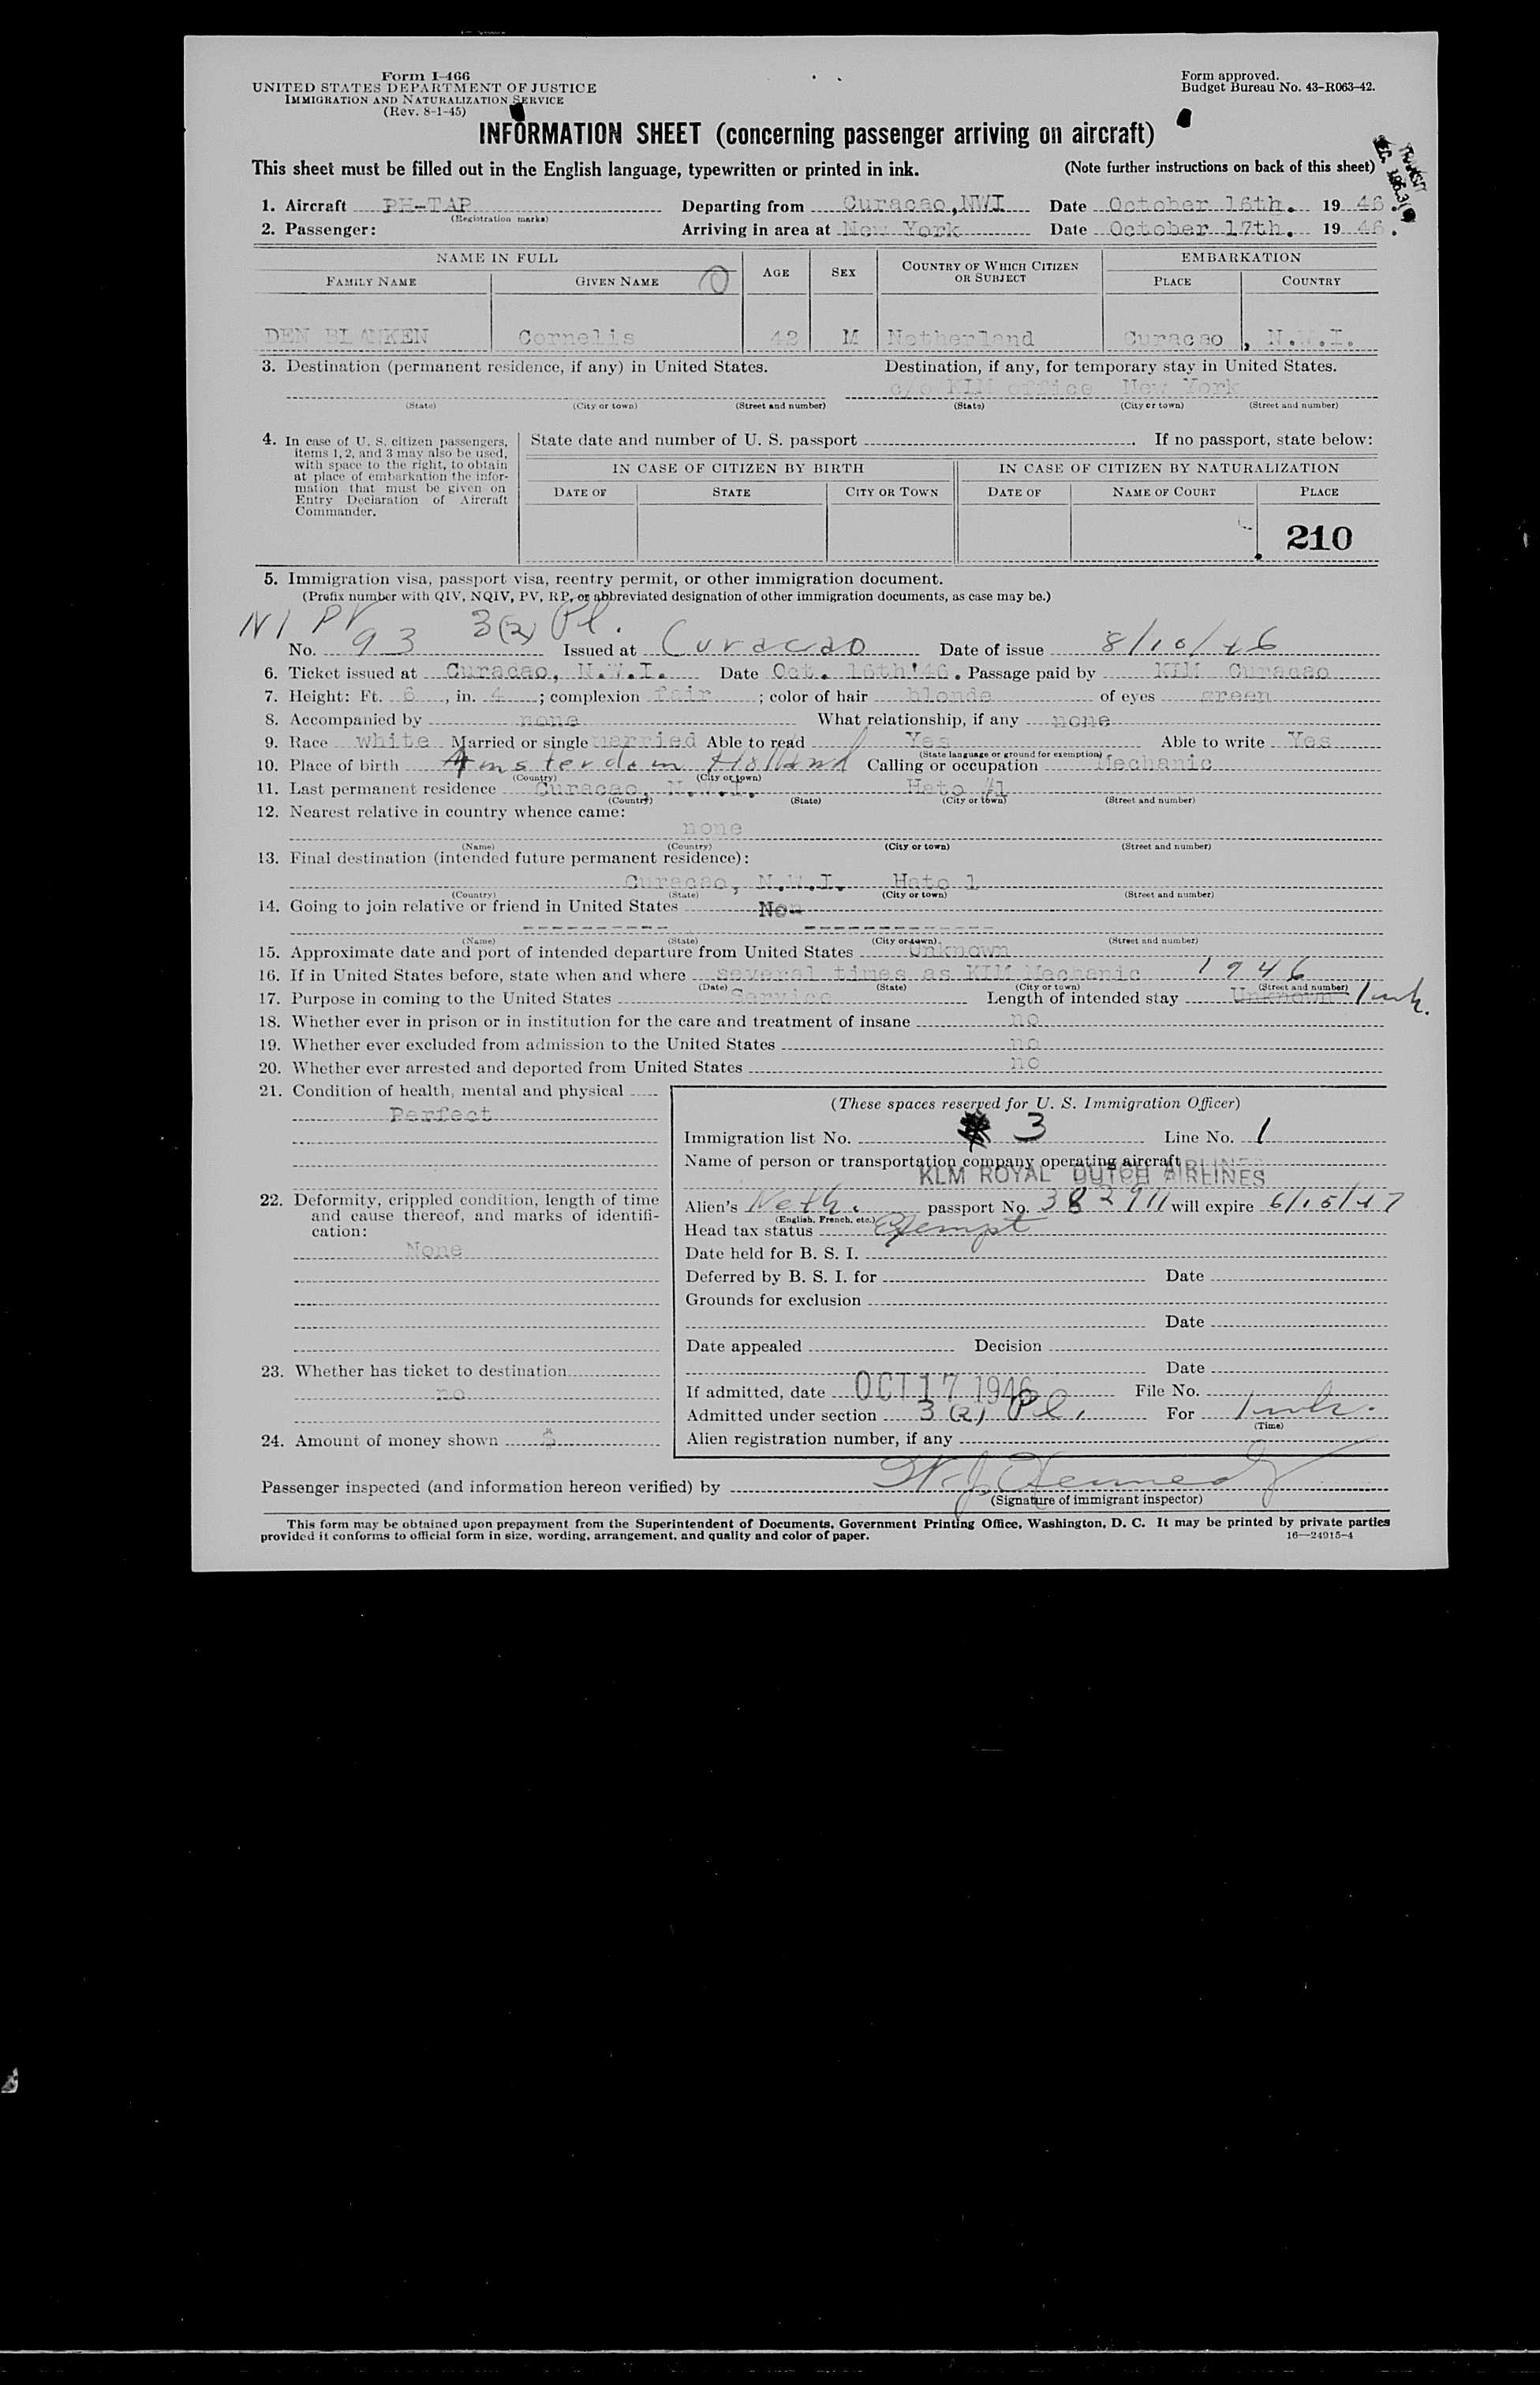 Form I-466
UNITED STATES DEPARTMENT OF JUSTICE
IMMIGRATION AND NATURALIZATION SERVICE
(Rev. 8-1-45)
Form approved.
Budget Bureau No. 43-R063-42.
INFORMATION SHEET (concerning passenger arriving on aircraft)
This sheet must be filled out in the English language, typewritten or printed in ink. (Note further instructions on back of this sheet)
TRANSIT
1. Aircraft PH-TAP Departing from Curacao,NWI Date October 16th. 19 46.
(Registration marks)
2. Passenger: Arriving in area at New York Date October 17th. 19 46.
NAME IN FULL AGE SEX COUNTRY OF WHICH CITIZEN OR SUBJECT EMBARKATION
FAMILY NAME GIVEN NAME PLACE COUNTRY
DEN BLANKEN Cornelis 42 M Netherland Curacao , N.W.I.
3. Destination (permanent residence, if any) in United States. Destination, if any, for temporary stay in United States.
c/o KLM office New York
(State) (City or town) (Street and number) (State) (City or town) (Street and number)
4. In case of U. S. citizen passengers, items 1, 2, and 3 may also be used, with space to the right, to obtain at place of embarkation the information that must be given on Entry Declaration of Aircraft Commander.
State date and number of U. S. passport If no passport, state below:
IN CASE OF CITIZEN BY BIRTH IN CASE OF CITIZEN BY NATURALIZATION
DATE OF STATE CITY OR TOWN DATE OF NAME OF COURT PLACE
210
5. Immigration visa, passport visa, reentry permit, or other immigration document.
(Prefix number with QIV, NQIV, PV, RP, or abbreviated designation of other immigration documents, as case may be.)
NI PV 3(2) Pl.
No. 93 Issued at Curacao Date of issue 8/10/46
6. Ticket issued at Curacao, N.W.I. Date Oct. 16th'46. Passage paid by KLM Curacao
7. Height: Ft. 6, in. 4; complexion fair; color of hair blonde of eyes green
8. Accompanied by none What relationship, if any none
9. Race white Married or single married Able to read Yes Able to write Yes
(State language or ground for exemption)
10. Place of birth Amsterdam Holland Calling or occupation Mechanic
(Country) (City or town)
11. Last permanent residence Curacao, N.W.I. Hato #1
(Country) (State) (City or town) (Street and number)
12. Nearest relative in country whence came:
none
(Name) (Country) (City or town) (Street and number)
13. Final destination (intended future permanent residence):
Curacao, N.W.I. Hato 1
(Country) (State) (City or town) (Street and number)
14. Going to join relative or friend in United States No-
(Name) (State) (City or town) (Street and number)
15. Approximate date and port of intended departure from United States Unknown
16. If in United States before, state when and where several times as KLM Mechanic 1946
(Date) (State) (City or town) (Street and number)
17. Purpose in coming to the United States Service Length of intended stay Unknown 1 wk.
18. Whether ever in prison or in institution for the care and treatment of insane no
19. Whether ever excluded from admission to the United States no
20. Whether ever arrested and deported from United States no
21. Condition of health, mental and physical
Perfect
22. Deformity, crippled condition, length of time and cause thereof, and marks of identification:
None
23. Whether has ticket to destination
no
24. Amount of money shown $
(These spaces reserved for U. S. Immigration Officer)
Immigration list No. 3 Line No. 1
Name of person or transportation company operating aircraft
KLM ROYAL DUTCH AIRLINES
Alien's Neth. passport No. 382911 will expire 6/15/47
(English, French, etc.)
Head tax status Exempt
Date held for B. S. I.
Deferred by B. S. I. for Date
Grounds for exclusion
Date
Date appealed Decision
Date
If admitted, date OCT 17 1946 File No.
Admitted under section 3(2) Pl. For 1 wk.
(Time)
Alien registration number, if any
Passenger inspected (and information hereon verified) by W. J. Kennedy
(Signature of immigrant inspector)
This form may be obtained upon prepayment from the Superintendent of Documents, Government Printing Office, Washington, D. C. It may be printed by private parties
provided it conforms to official form in size, wording, arrangement, and quality and color of paper. 16—24915-4